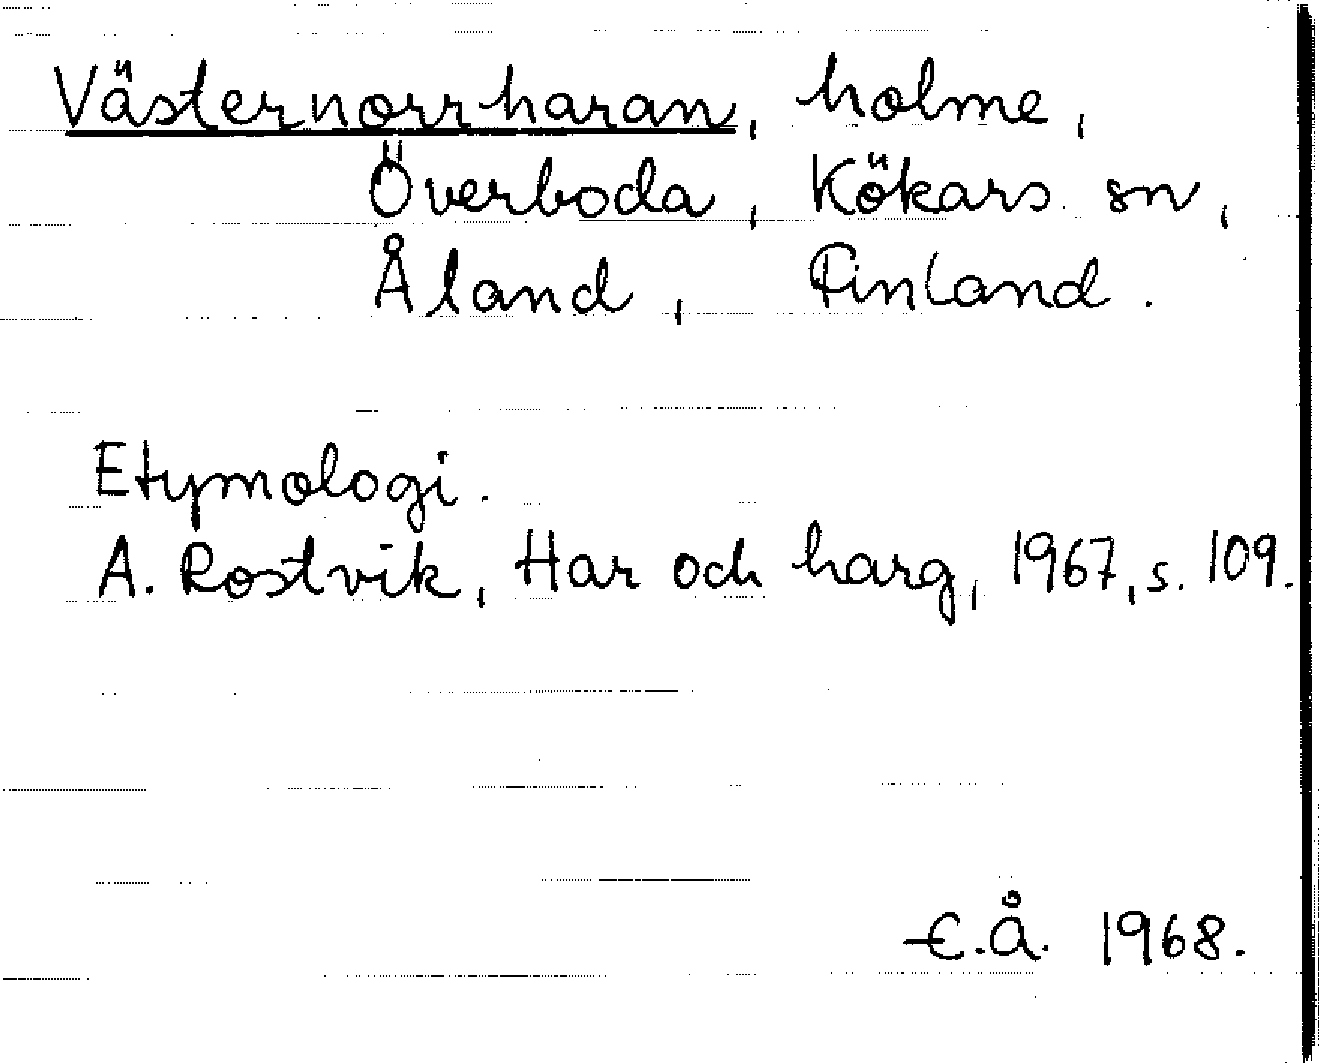 Västernorrharan, holme,
Överboda, Kökars sn,
Åland, Finland.
Etymologi.
A. Rostvik, Har och harg, 1967, s. 109.
E.Å. 1968.